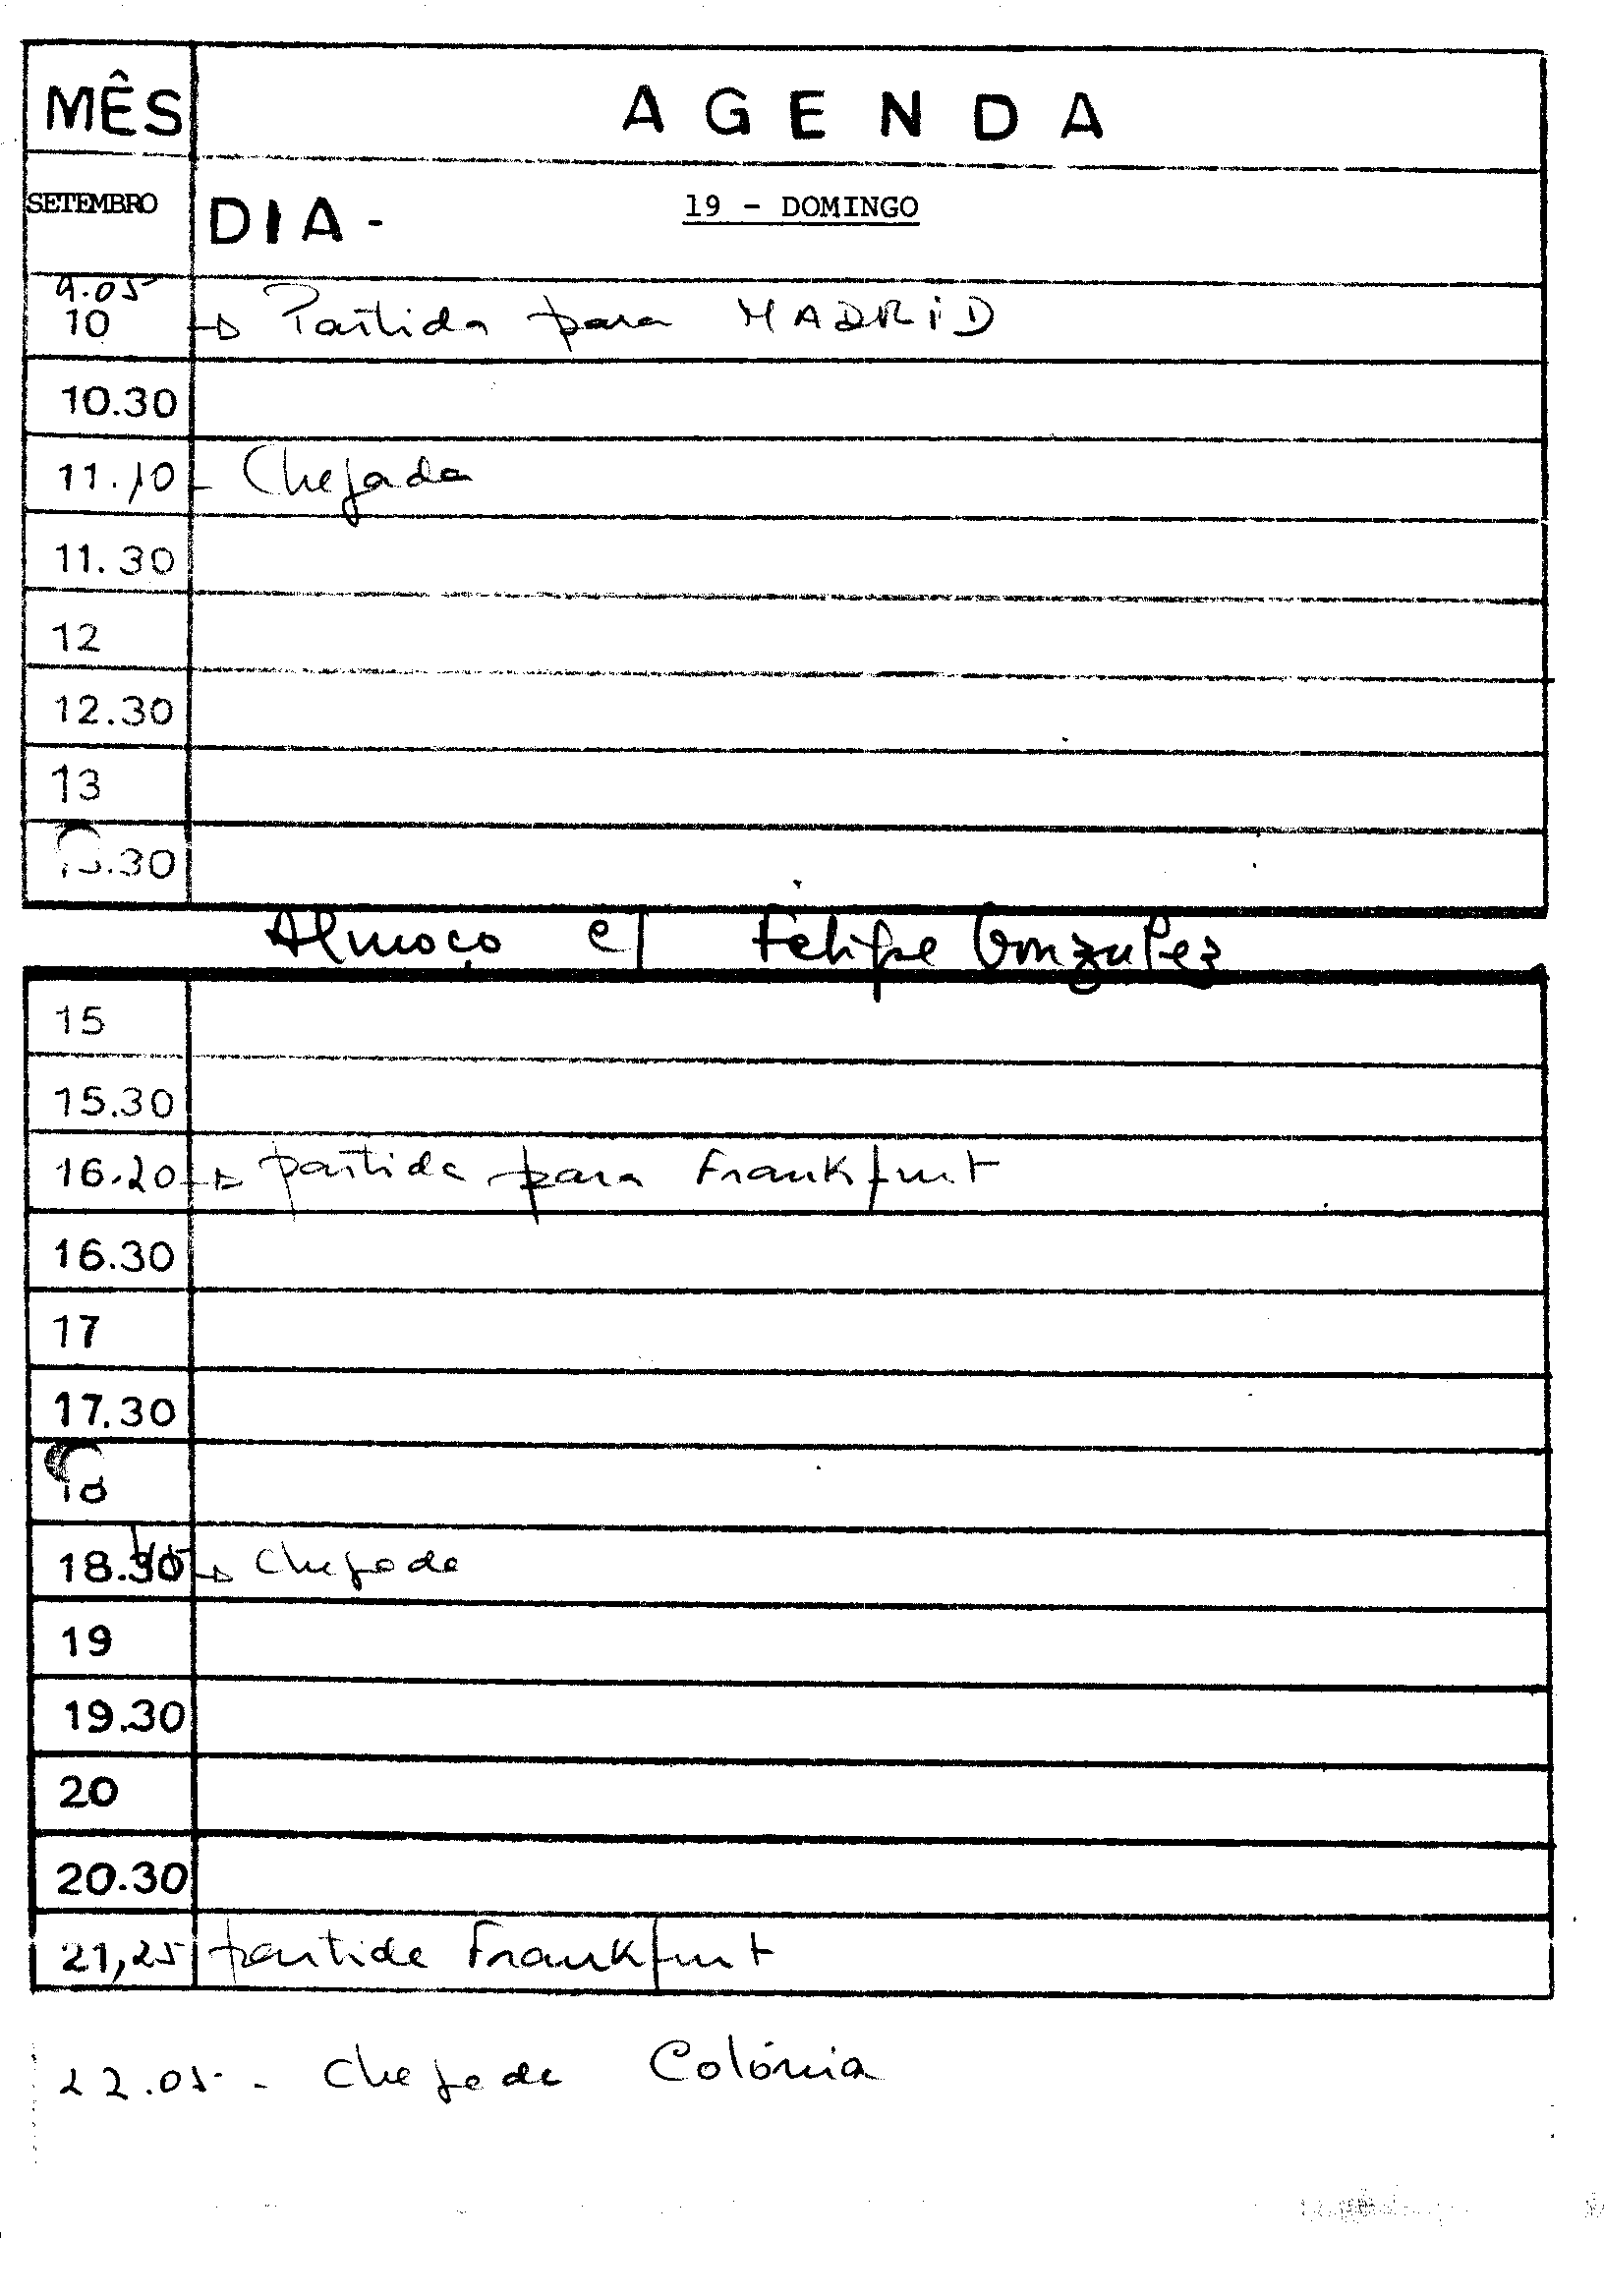 MÊS AGENDA
SETEMBRO DIA - 19 - DOMINGO
9.05
10 → Partida para MADRID
10.30
11.10 - Chegada
11.30
12
12.30
13
13.30
Almoço c/ Felipe Gonzalez
15
15.30
16.20 → partida para Frankfurt
16.30
17
17.30
18
18.45 → Chegada
19
19.30
20
20.30
21,25 partida Frankfurt
22.05 - Chegada Colónia